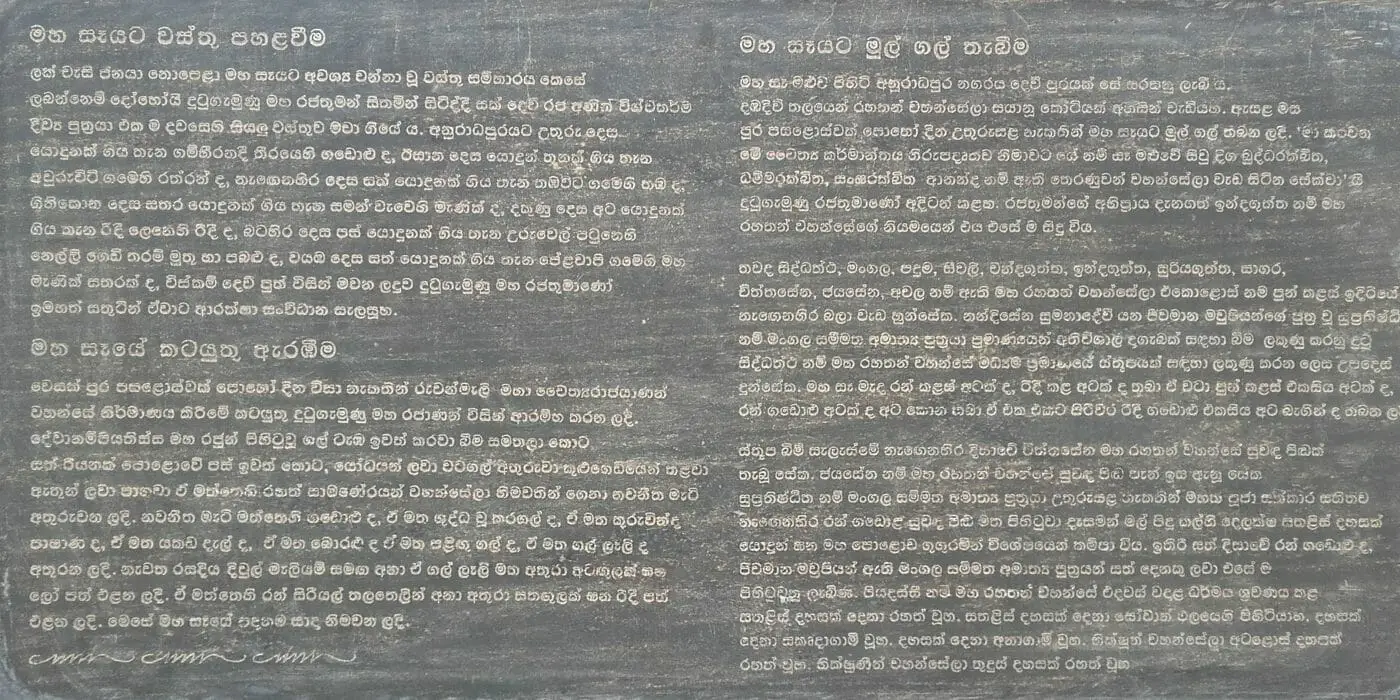 මහ සෑයට වස්තු පහළවීම
ලක් වැසි ජනයා නොපෙළා මහ සෑයට අවශ්‍ය වන්නා වූ වස්තු සම්භාරය කෙසේ
ලබන්නෙම් දෝහෝයි දුටුගැමුණු මහ රජතුමන් සිතමින් සිටිද්දී සක් දෙව් රජ අණින් විශ්වකර්ම
දිව්‍ය පුත්‍රයා එක ම දවසෙහි සියලු වස්තුව මවා ගියේ ය. අනුරාධපුරයට උතුරු දෙස
යොදුනක් ගිය තැන ගම්භීරනදී තීරයෙහි ගඩොළු ද, ඊසාන දෙස යොදුන් තුනක් ගිය තැන
අවුරුවිටි ගමෙහි රත්රන් ද, නැගෙනහිර දෙස සත් යොදුනක් ගිය තැන තඹවිට ගමෙහි තඹ ද,
ගිනිකොන දෙස සතර යොදුනක් ගිය තැන සමන් වැවෙහි මැණික් ද, දකුණු දෙස අට යොදුනක්
ගිය තැන රිදී ලෙනෙහි රිදී ද, බටහිර දෙස පස් යොදුනක් ගිය තැන උරුවෙල් පටුනෙහි
නෙල්ලි ගෙඩි තරම් මුතු හා පබළු ද, වයඹ දෙස සත් යොදුනක් ගිය තැන පේළවාපි ගමෙහි මහ
මැණික් සතරක් ද, විස්කම් දෙව් පුත් විසින් මවන ලදුව දුටුගැමුණු මහ රජතුමාණෝ
ඉමහත් සතුටින් ඒවාට ආරක්ෂා සංවිධාන සැලසූහ.
මහ සෑයේ කටයුතු ඇරඹීම
වෙසක් පුර පසළොස්වක් පොහෝ දින විසා නැකතින් රුවන්මැලි මහා චෛත්‍යරාජයාණන්
වහන්සේ නිර්මාණය කිරීමේ කටයුතු දුටුගැමුණු මහ රජාණන් විසින් ආරම්භ කරන ලදී.
දේවානම්පියතිස්ස මහ රජුන් පිහිටුවූ ගල් ටැඹ ඉවත් කරවා බිම සමතලා කොට
සත් රියනක් පොළොවේ පස් ඉවත් කොට, යෝධයන් ලවා වටගල් අතුරුවා කුළුගෙඩියෙන් තළවා
ඇතුන් ලවා පාගවා ඒ මත්තෙහි රහත් සාමණේරයන් වහන්සේලා හිමවතින් ගෙනා නවනීත මැටි
අතුරුවන ලදි. නවනීත මැටි මත්තෙහි ගඩොළු ද, ඒ මත ශුද්ධ වූ කරගල් ද, ඒ මත කුරුවින්ද
පාෂාණ ද, ඒ මත යකඩ දැල් ද, ඒ මත බොරළු ද ඒ මත පළිඟු ගල් ද, ඒ මත ගල් ලෑලි ද
අතුරන ලදි. නැවත රසදිය දිවුල් මැලියම් සමඟ අනා ඒ ගල් ලෑලි මත අතුරා අටඟුලක් ඝන
ලෝ පත් එළන ලදි. ඒ මත්තෙහි රන් සිරියල් තලතෙලින් අනා අතුරා සතඟුලක් ඝන රිදී පත්
එළන ලදි. මෙසේ මහ සෑයේ පාදනම සාදා නිමවන ලදී.
මහ සෑයට මුල් ගල් තැබීම
මහ සෑ මළුව පිහිටි අනුරාධපුර නගරය දෙව් පුරයක් සේ සරසනු ලැබී ය.
දඹදිව් තලයෙන් රහතන් වහන්සේලා සයානූ කෝටියක් අහසින් වැඩියහ. ඇසළ මස
පුර පසළොස්වක් පොහෝ දින උතුරුසළ නැකතින් මහ සෑයට මුල් ගල් තබන ලදී. 'මා කරවන
මේ චෛත්‍ය කර්මාන්තය නිරුපද්‍රැතව නිමාවට යේ නම් සෑ මළුවේ සිවු දිග බුද්ධරක්ඛිත,
ධම්මරක්ඛිත, සංඝරක්ඛිත ආනන්ද නම් ඇති තෙරණුවන් වහන්සේලා වැඩ සිටින සේක්වා' යි
දුටුගැමුණු රජතුමාණෝ අදිටන් කළහ. රජතුමන්ගේ අභිප්‍රාය දැනගත් ඉන්ද්‍රගුත්ත නම් මහ
රහතන් වහන්සේගේ නියමයෙන් එය එසේ ම සිදු විය.
තවද සිද්ධත්ථ, මංගල, පදුම, සීවලී, චන්දගුත්ත, ඉන්ද්‍රගුත්ත, සූරියගුත්ත, සාගර,
චිත්තසේන, ජයසේන, අචල නම් ඇති මහ රහතන් වහන්සේලා එකොළොස් නම පුන් කළස් ඉදිරියෙහි
නැගෙනහිර බලා වැඩ හුන්සේක. නන්දිසේන සුමනාදේවී යන ජීවමාන මවුපියන්ගේ පුත්‍ර වූ සුප්‍රතිෂ්ඨිත
නම් මංගල සම්මත අමාත්‍ය පුත්‍රයා ප්‍රමාණයෙන් අතිවිශාල් දාගැබක් සඳහා බිම ලකුණු කරනු දුටු
සිද්ධත්ථ නම් මහ රහතන් වහන්සේ මධ්‍යම ප්‍රමාණයේ ස්තූපයක් සඳහා ලකුණු කරන ලෙස උපදෙස්
දුන්සේක. මහ සෑ මැද රන් කළස් අටක් ද, රිදී කළ අටක් ද තබා ඒ වටා පුන් කළස් එකසිය අටක් ද,
රන් ගඩොළු අටක් ද අට කොන තබා ඒ එක එකට පිරිවර රිදී ගඩොළු එකසිය අට බැගින් ද තබන ල
ස්තූප බිම් සැලැස්මේ නැගෙනහිර දිසාවේ චිත්තසේන මහ රහතන් වහන්සේ සුවඳ පිඬක්
තැබූ සේක. ජයසේන නම් මහ රහතන් වහන්සේ සුවඳ පිඬ පැන් ඉස ඇනූ සේක
සුප්‍රතිෂ්ඨිත නම් මංගල සම්මත අමාත්‍ය පුත්‍රයා උතුරුසළ නැකතින් මහඟු පූජා සත්කාර සහිතව
නැගෙනහිර රන් ගඩොළ සුවඳ පිඬ මත පිහිටුවා දෑසමන් මල් පිදූ කල්හි දෙලක්ෂ සතළිස් දහසක්
යොදුන් ඝන මහ පොළොව ගුගුරමින් විශේෂයෙන් කම්පා විය. ඉතිරි සත් දිසාවේ රන් ගඩොළු ද,
ජීවමාන මවුපියන් ඇති මංගල සම්මත අමාත්‍ය පුත්‍රයන් සත් දෙනකු ලවා එසේ ම
පිහිටුවනු ලැබිණ. පියදස්සී නම් මහ රහතන් වහන්සේ එදවස් වදාළ ධර්මය ශ්‍රවණය කළ
සතළිස් දහසක් දෙනා රහත් වූහ. සතළිස් දහසක් දෙනා සෝවාන් ඵලයෙහි පිහිටියාහ, දහසක්
දෙනා සකෘදාගාමී වූහ. දහසක් දෙනා අනාගාමී වූහ. භික්ෂූන් වහන්සේලා අටළොස් දහසක්
රහත් වූහ. භික්ෂුණීන් වහන්සේලා තුදුස් දහසක් රහත් වූහ